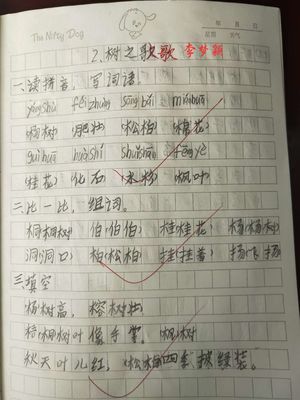 The Nifty Dog
年 月 日
星期 天气
2.树之歌歌 李梦颖
一、读拼音,写词语。
yáng shù féi zhuàng sōng bǎi mián huā
(杨树)(肥壮)(松柏)(棉花)
guì huā huà shí shuǐ shān fēng yè
(桂花)(化石)(水杉)(枫叶)
二、比一比,组词。
桐(桐树) 伯(伯伯) 桂(桂花) 杨(杨树)
洞(洞口) 柏(松柏) 挂(挂着) 扬(飞扬)
三、填空
杨树高,榕树壮
梧桐树叶像手掌。枫树
秋天叶儿红,松柏四季披绿装。